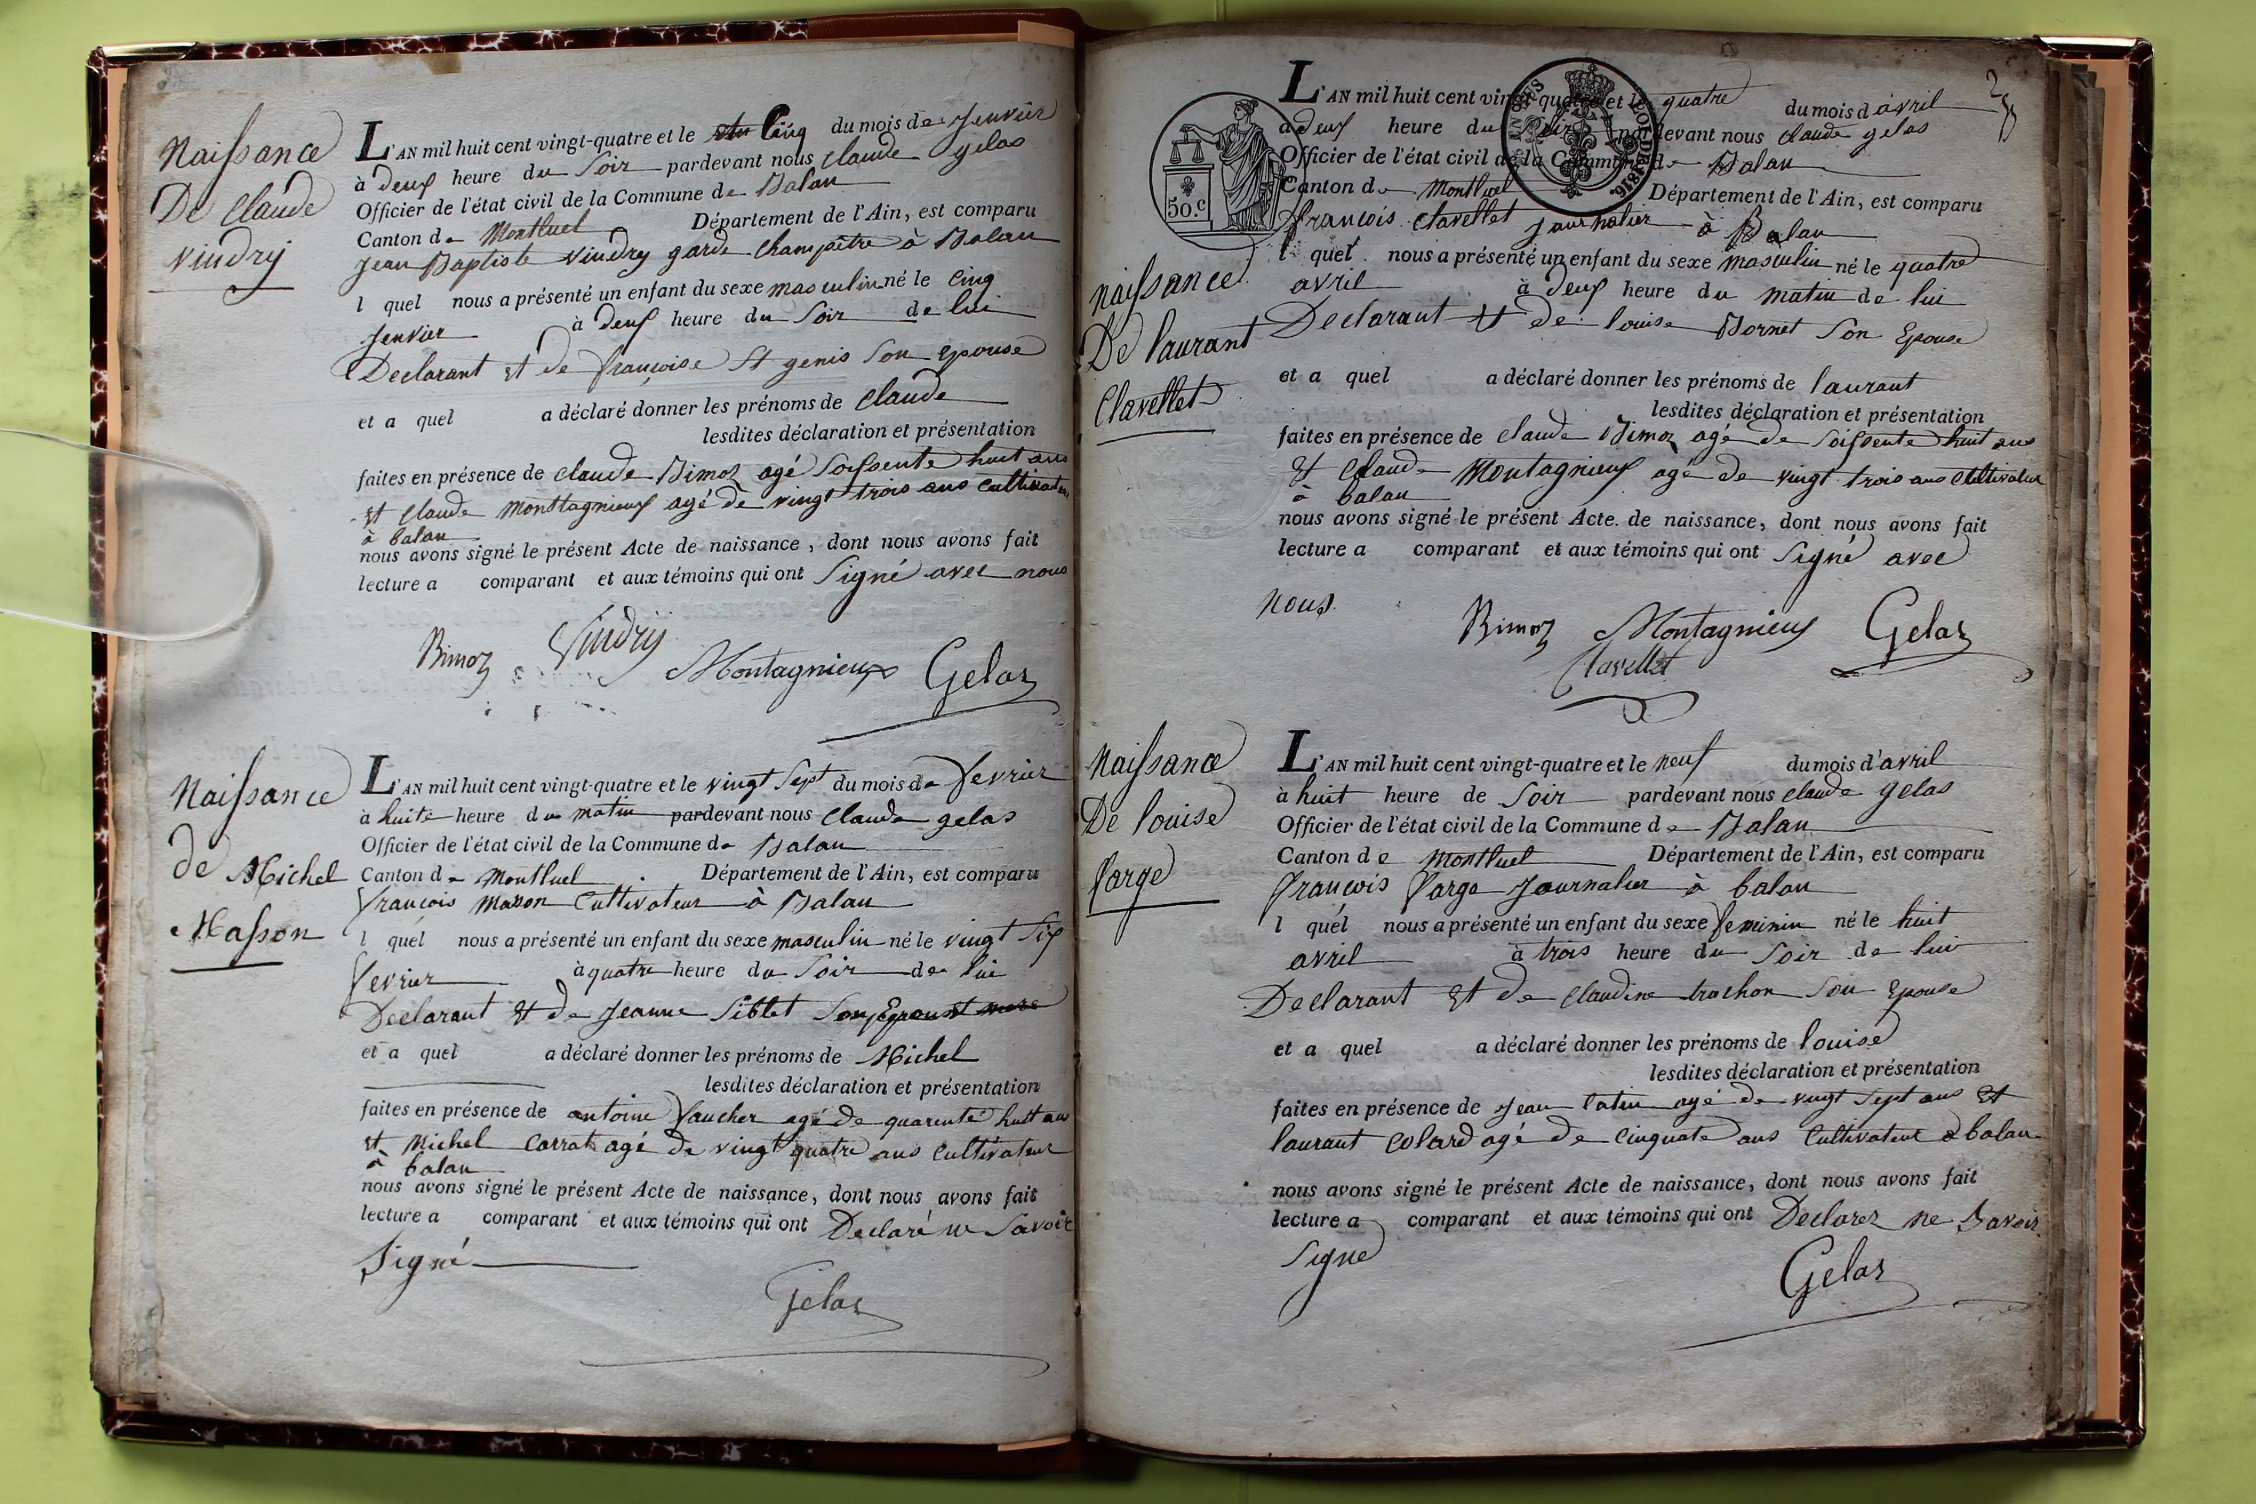 Naissance
De Claude
vindry
L'AN mil huit cent vingt-quatre et le Cinq du mois de Jenvier
à deux heure du Soir pardevant nous Claude gelas
Officier de l'état civil de la Commune de Balan
Canton de Montluel Département de l'Ain, est comparu
Jean Baptiste vindry garde Champêtre à Balan
l quel nous a présenté un enfant du sexe masculin né le Cinq
Jenvier à deux heure du Soir de lui
Declarant et de françoise St genis Son Epouse
et a quel a déclaré donner les prénoms de Claude
lesdites déclaration et présentation
faites en présence de Claude Bimoz agé Soissente huit ans
et Claude Monttagnieux agé de vingt trois ans Cultivateur
à balan
nous avons signé le présent Acte de naissance, dont nous avons fait
lecture a comparant et aux témoins qui ont Signé avec nous
Bimoz Vindry Montagnieux Gelas
Naissance
de Michel
Masson
L'AN mil huit cent vingt-quatre et le vingt Sept du mois de fevrier
à huite heure du matin pardevant nous Claude gelas
Officier de l'état civil de la Commune de Balan
Canton de Montluel Département de l'Ain, est comparu
françois Masson Cultivateur à Balan
l quel nous a présenté un enfant du sexe masculin né le vingt Six
fevrier à quatre heure du Soir de lui
Declarant et de Jeanne Siblet Son Epouse
et a quel a déclaré donner les prénoms de Michel
lesdites déclaration et présentation
faites en présence de antoine faucher agé de quarente huit ans
et Michel Carrat agé de vingt quatre ans Cultivateur
à balan
nous avons signé le présent Acte de naissance, dont nous avons fait
lecture a comparant et aux témoins qui ont Declaré ne Savoir
Signé
Gelas
2
50.c
LOI DE 1816.
naissance
De laurant
Clavellet
L'AN mil huit cent vingt-quatre et le quatre du mois d'avril
à deux heure du Soir pardevant nous Claude gelas
Officier de l'état civil de la Commune de Balan
Canton de Montluel Département de l'Ain, est comparu
françois Clavellet Journalier à Balan
l quel nous a présenté un enfant du sexe masculin né le quatre
avril à deux heure du matin de lui
Declarant et de louise Bornet Son Epouse
et a quel a déclaré donner les prénoms de laurant
lesdites déclaration et présentation
faites en présence de Claude Bimoz agé de Soissente huit ans
et Claude Montagnieux agé de vingt trois ans Cultivateur
à balan
nous avons signé le présent Acte de naissance, dont nous avons fait
lecture a comparant et aux témoins qui ont Signé avec
nous
Bimoz Montagnieux Gelas
Clavellet
naissance
De louise
farge
L'AN mil huit cent vingt-quatre et le neuf du mois d'avril
à huit heure de Soir pardevant nous Claude gelas
Officier de l'état civil de la Commune de Balan
Canton de Montluel Département de l'Ain, est comparu
françois farge Journalier à balan
l quel nous a présenté un enfant du sexe feminin né le huit
avril à trois heure du Soir de lui
Declarant et de Claudine trachon Son Epouse
et a quel a déclaré donner les prénoms de louise
lesdites déclaration et présentation
faites en présence de Jean latin agé de vingt Sept ans et
laurant Colard agé de Cinquate ans Cultivateur à balan
nous avons signé le présent Acte de naissance, dont nous avons fait
lecture a comparant et aux témoins qui ont Declarez ne Savoir
Signe
Gelas